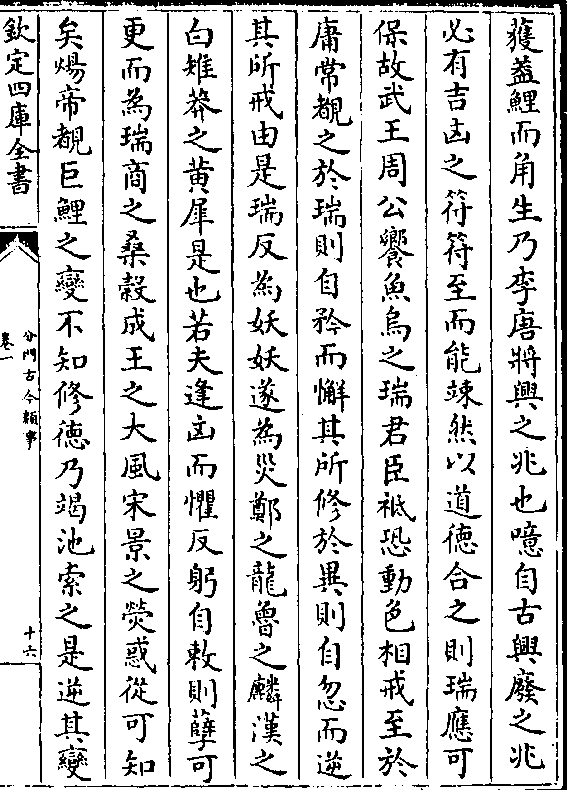 獲蓋鯉而角生乃李唐將興之兆也噫自古興廢之兆
必有吉凶之符符至而能竦然以道德合之則瑞應可
保故武王周公饗魚烏之瑞君臣祗恐動色相戒至於
庸常覩之於瑞則自矜而懈其所修於異則自忽而逆
其所戒由是瑞反為妖妖遂為災鄭之龍魯之麟漢之
白雉莽之黄犀是也若夫逢凶而懼反躬自敕則孽可
更而為瑞商之桑榖成王之大風宋景之熒惑從可知
矣煬帝覩巨鯉之變不知修德乃竭池索之是逆其變
欽定四庫全書
分門古今類事
卷一
十六